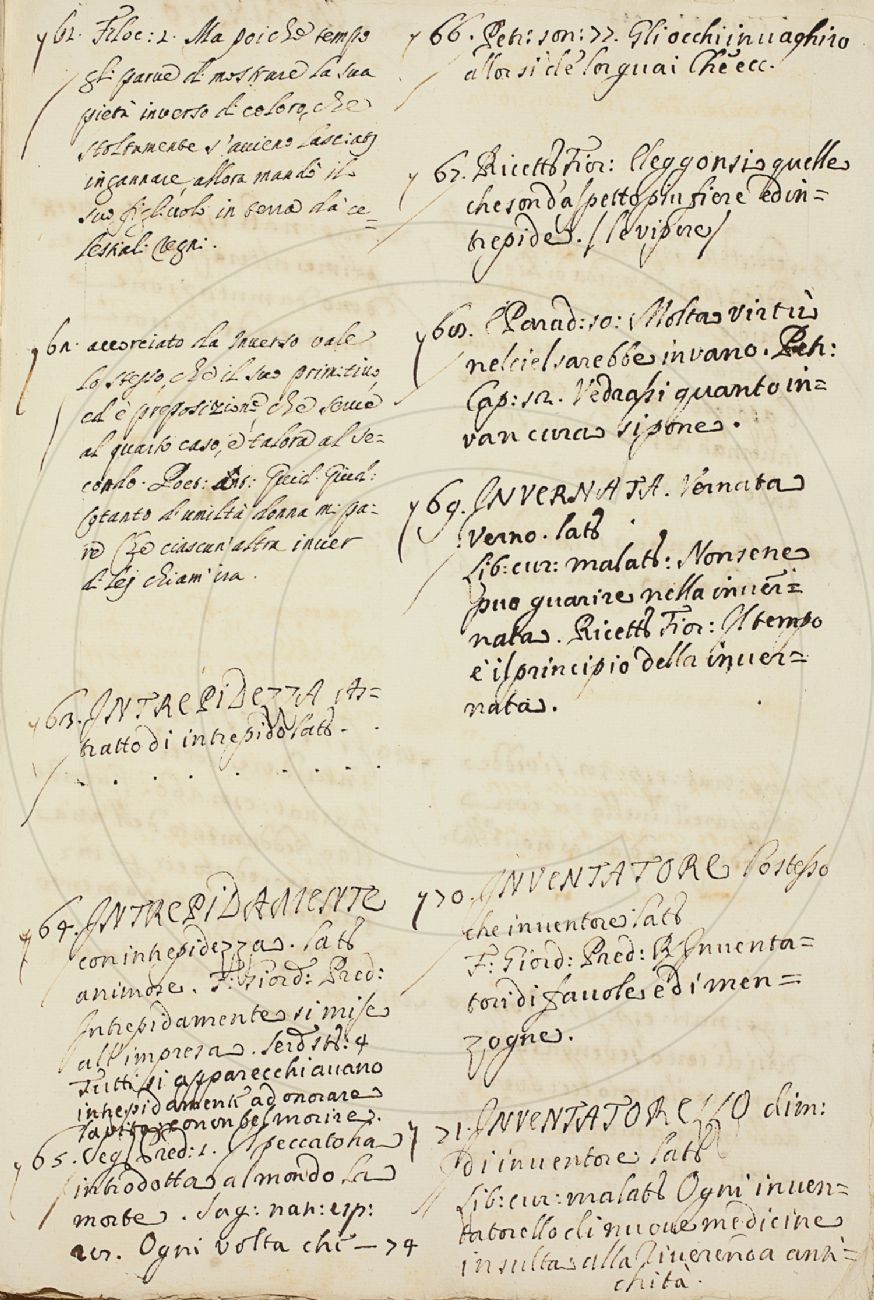 61. Filoc: 2. Ma poi chè tempo
gli parve di mostrare la sua
pietà inverso di coloro, che
stoltamente s'avieno lasciati
ingannare, allora mandò il
suo figliuolo in terra da' ce=
lestiali regni.
62. accorciato da Inverso vale
lo stesso, che il suo primitivo,
ed è preposizione, che serve
al quarto caso, e talora al se=
condo. Poet: Ant: Guid. Giud:
Cotanto d'umiltà donna mi pa=
re Che ciascun'altra inver
di lej chiam'ira.
63. INTREPIDEZZA As=
tratto di intrepido Lat.
64. INTREPIDAMENTE
con intrepidezza. Lat
animose. F: Giord: Pred:
Intrepidamente si mise
all'impresa. Serd st: 4
Tutti si apparecchiavano
intrepidamente ad onorare
la vita con un bel morire.
65. Seg: Pred: 1. Il peccato ha
introdotta al mondo la
morte. Sag: nat: esp:
Ogni volta che — 74
66. Petr: son: 77. Gli occhi invaghiro
allor sì de' lor guai Che ecc.
67. Ricett Fior: Eleggonsi quelle
che son d'aspetto più fiere ed in=
trepide. (le vipere)
68. Parad: 10: Molta virtù
nel ciel sarebbe in vano. Petr:
Cap: 12. Vedrassi quanto in=
van cura si pone.
69. INVERNATA. Vernata
Verno. lat
Lib: cur: malatt: Non se ne
può guarire nella inver=
nata. Ricett Fior: Il tempo
è il principio della inver=
nata.
70. INVENTATORE Lo stesso
che inventore Lat
F: Giord: Pred: R Inventa=
tori di favole, e di men=
zogne.
71. INVENTATORELLO dim:
di inventore Lat
Lib: cur: malatt Ogni inven=
tatorello di nuove medicine
insulta alla riverenda anti=
chità.